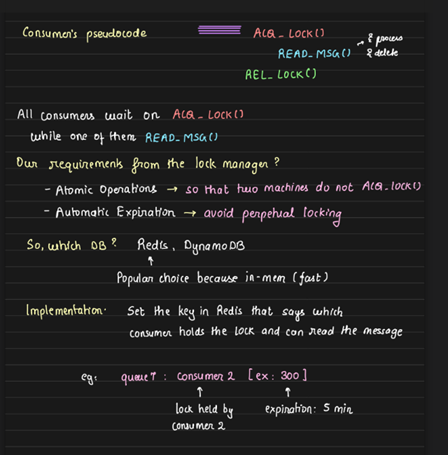 Consumer's pseudocode
ACQ_LOCK()
READ_MSG() → & process
& delete
REL_LOCK()
All consumers wait on ACQ_LOCK()
while one of them READ_MSG()
Our requirements from the lock manager?
- Atomic Operations → so that two machines do not ACQ_LOCK()
- Automatic Expiration → avoid perpetual locking
So, which DB? Redis, DynamoDB
↑
Popular choice because in-mem (fast)
Implementation: Set the key in Redis that says which
consumer holds the lock and can read the message
eg: queue7 : consumer 2 [ex: 300]
↑ ↑
lock held by expiration: 5 min
consumer 2